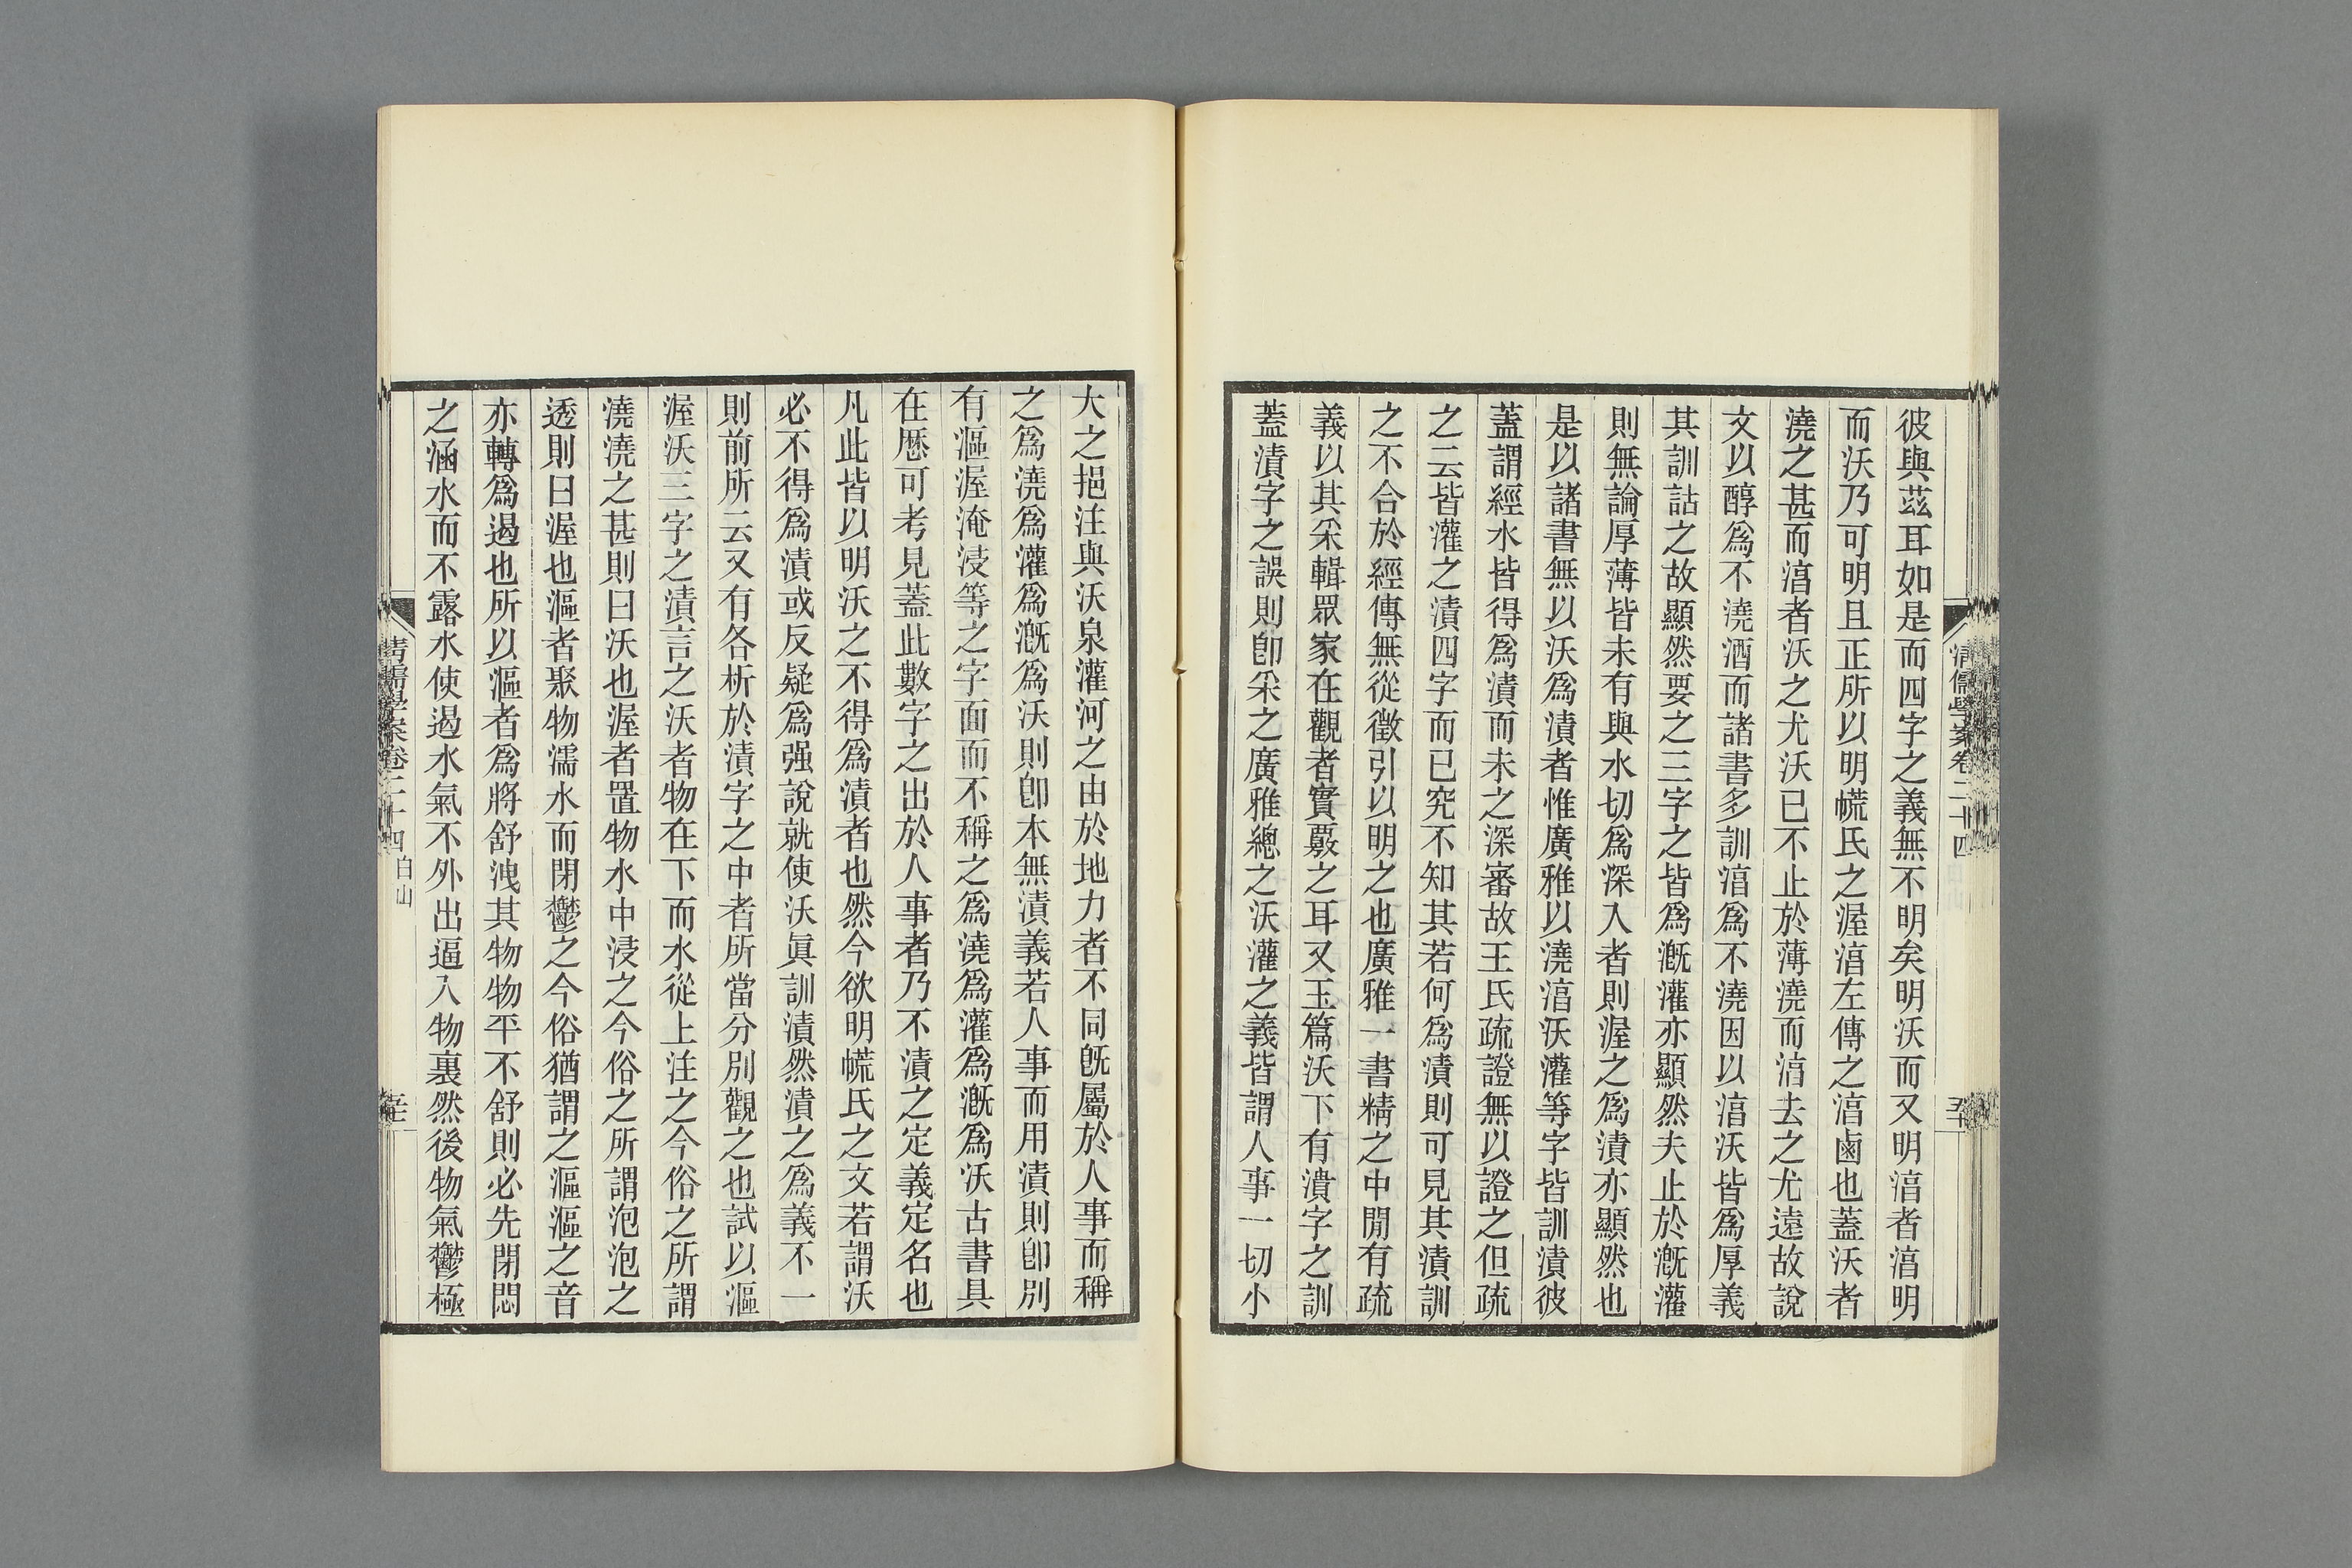 彼與茲耳如是而四字之義無不明矣明沃而又明淯者淯明
而沃乃可明且正所以明㡛氏之渥淯左傳之淯鹵也蓋沃者
澆之甚而淯者沃之尤沃已不止於薄澆而淯去之尤遠故說
文以醇爲不澆酒而諸書多訓淯爲不澆因以淯沃皆爲厚義
其訓詁之故顯然要之三字之皆爲漑灌亦顯然夫止於漑灌
則無論厚薄皆未有與水切爲深入者則渥之爲漬亦顯然也
是以諸書無以沃爲漬者惟廣雅以澆淯沃灌等字皆訓漬彼
蓋謂經水皆得爲漬而未之深審故王氏疏證無以證之但疏
之云皆灌之漬四字而已究不知其若何爲漬則可見其漬訓
之不合於經傳無從徵引以明之也廣雅一書精之中閒有疏
義以其采輯眾家在觀者實覈之耳又玉篇沃下有潰字之訓
蓋漬字之誤則卽采之廣雅總之沃灌之義皆謂人事一切小
清儒學案卷二十四
大之挹注與沃泉灌河之由於地力者不同旣屬於人事而稱
之爲澆爲灌爲漑爲沃則卽本無漬義若人事而用漬則卽別
有漚渥淹浸等之字面而不稱之爲澆爲灌爲漑爲沃古書具
在歷可考見蓋此數字之出於人事者乃不漬之定義定名也
凡此皆以明沃之不得爲漬者也然今欲明㡛氏之文若謂沃
必不得爲漬或反疑爲强說就使沃眞訓漬然漬之爲義不一
則前所云又有各析於漬字之中者所當分別觀之也試以漚
渥沃三字之漬言之沃者物在下而水從上注之今俗之所謂
澆澆之甚則曰沃也渥者置物水中浸之今俗之所謂泡泡之
透則曰渥也漚者聚物濡水而閉鬱之今俗猶謂之漚漚之音
亦轉爲遏也所以漚者爲將舒洩其物物平不舒則必先閉悶
之涵水而不露水使遏水氣不外出逼入物裏然後物氣鬱極
清儒學案卷二十四 白山